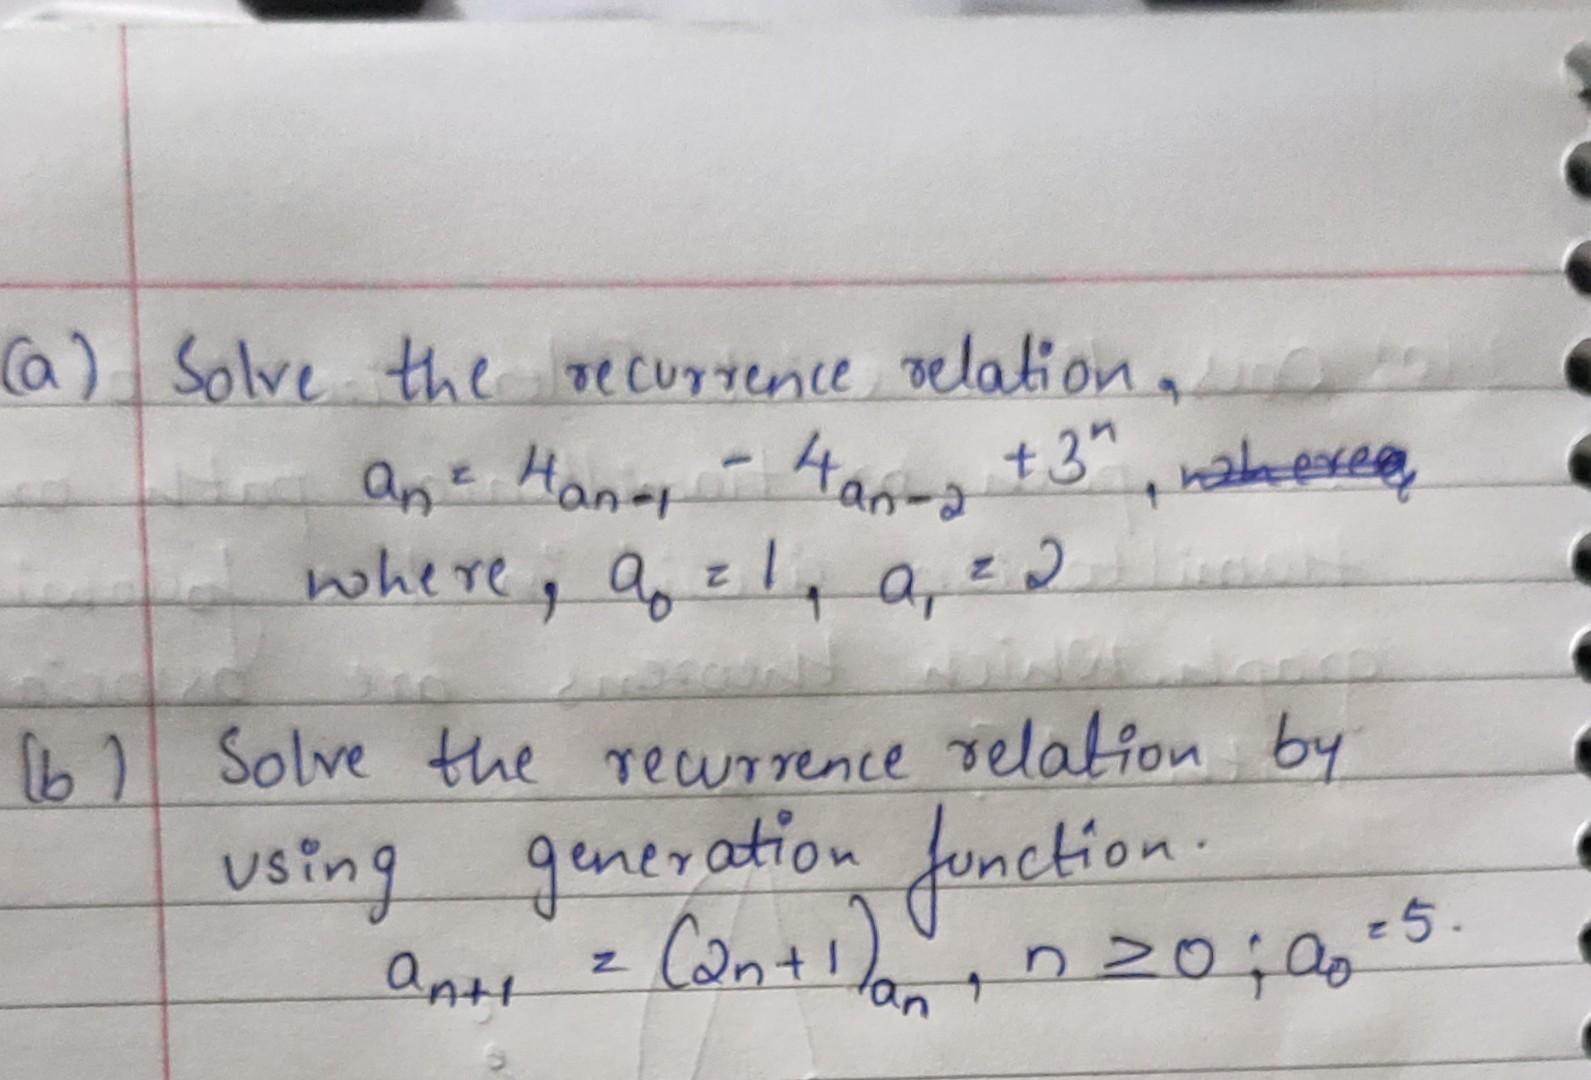 (a) Solve the recurrence relation,
aₙ = 4aₙ₋₁ - 4aₙ₋₂ + 3ⁿ,
where, a₀ = 1, a₁ = 2
(b) Solve the recurrence relation by
using generation function.
aₙ₊₁ = (2n+1)aₙ, n ≥ 0 ; a₀ = 5.